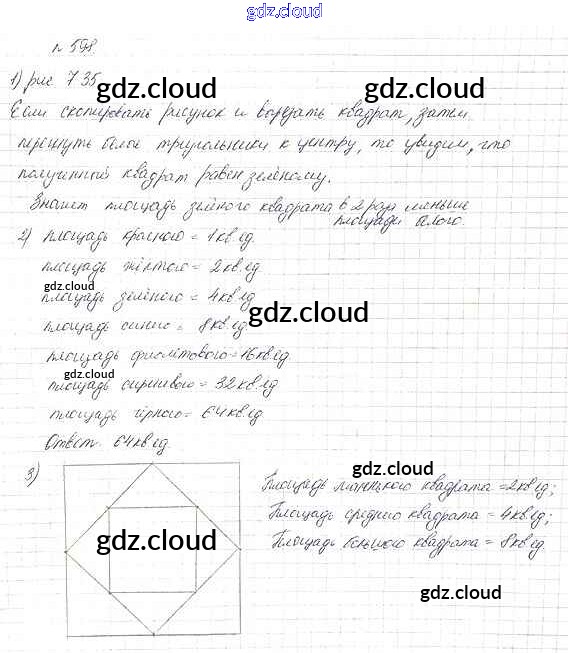 gdz.cloud
№ 598.
1) рис 7 35
gdz.cloud
Если скопировать рисунок и вырезать квадрат, затем
перегнуть белые треугольники к центру, то увидим, что
полученный квадрат равен зелёному.
Значит площадь зелёного квадрата в 2 раза меньше
площади белого.
2) площадь красного = 1 кв.ед.
площадь жёлтого = 2 кв.ед.
gdz.cloud
площадь зелёного = 4 кв.ед
gdz.cloud
площадь синего = 8 кв.ед.
площадь фиолетового = 16 кв.ед
gdz.cloud
площадь сиреневого = 32 кв.ед
площадь чёрного = 64 кв.ед
Ответ: 64 кв.ед.
3)
gdz.cloud
Площадь маленького квадрата = 2 кв.ед;
Площадь среднего квадрата = 4 кв.ед;
gdz.cloud
Площадь большого квадрата = 8 кв.ед.
gdz.cloud